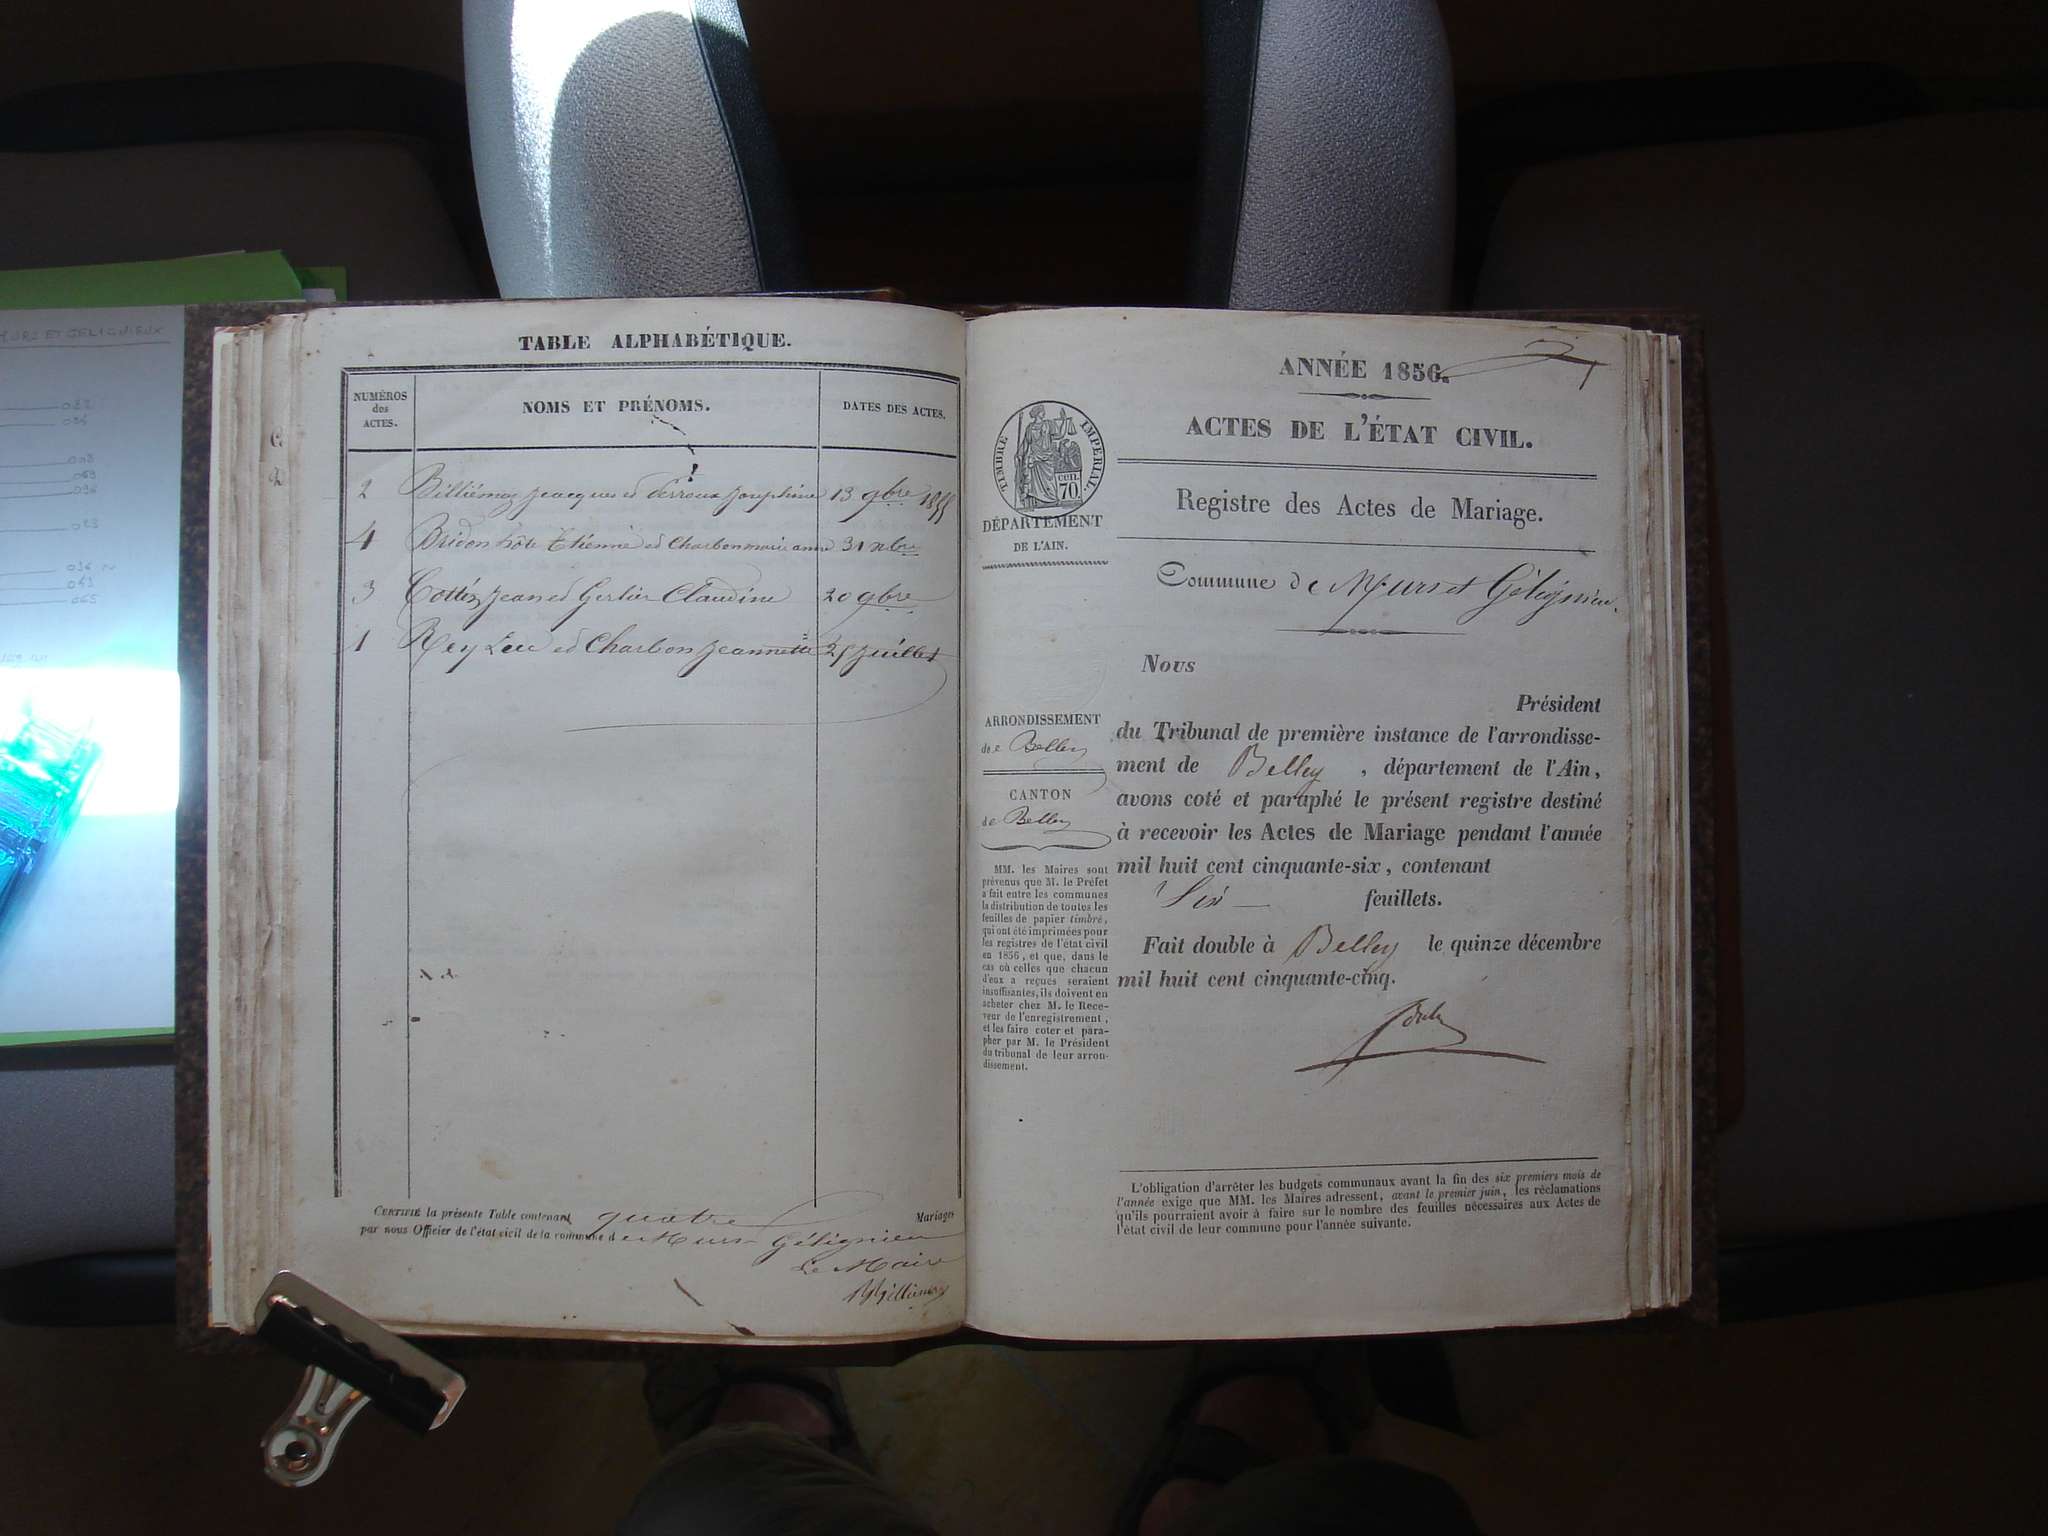 MURS ET GELIGNIEUX
TABLE ALPHABÉTIQUE.
NUMÉROS
des
ACTES.
NOMS ET PRÉNOMS.
DATES DES ACTES.
2 Billiémaz Jacques et Josephine 13 9bre 1855
4 Bridon Etienne et Charbon marie anne 31
3 Cottin Jean et Gerlier Claudine 20 9bre
1 Rey Luc et Charbon Jeannette 25 Juillet
CERTIFIÉ la présente Table contenant quatre Mariages
par nous Officier de l'état civil de la commune de Murs Gélignieu
Le Maire
Billiémaz
ANNÉE 1856.
ACTES DE L'ÉTAT CIVIL.
TIMBRE IMPERIAL.
70
CEN.
DÉPARTEMENT
DE L'AIN.
Registre des Actes de Mariage.
Commune de Murs et Gélignieu.
Nous
Président
du Tribunal de première instance de l'arrondisse-
ment de Belley, département de l'Ain,
avons coté et paraphé le présent registre destiné
à recevoir les Actes de Mariage pendant l'année
mil huit cent cinquante-six, contenant
Six feuillets.
Fait double à Belley le quinze décembre
mil huit cent cinquante-cinq.
ARRONDISSEMENT
de Belley
CANTON
de Belley
MM. les Maires sont
prévenus que M. le Préfet
a fait entre les communes
la distribution de toutes les
feuilles de papier timbré,
qui ont été imprimées pour
les registres de l'état civil
en 1856, et que, dans le
cas où celles que chacun
d'eux a reçues seraient
insuffisantes, ils doivent en
acheter chez M. le Rece-
veur de l'enregistrement,
et les faire coter et para-
pher par M. le Président
du tribunal de leur arron-
dissement.
L'obligation d'arrêter les budgets communaux avant la fin des six premiers mois de
l'année exige que MM. les Maires adressent, avant le premier juin, les réclamations
qu'ils pourraient avoir à faire sur le nombre des feuilles nécessaires aux Actes de
l'état civil de leur commune pour l'année suivante.